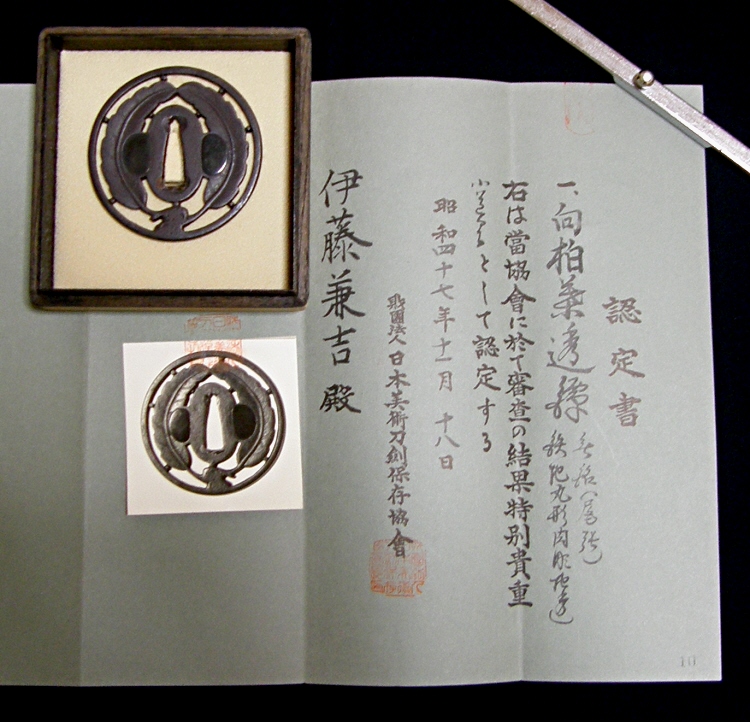 認定書
一、向柏葉透鐔
無銘(尾張)
鉄地丸形肉彫地透
右は當協會に於て審査の結果特別貴重
小道具として認定する
昭和四十七年十一月十八日
財團法人日本美術刀劍保存協會
伊藤兼吉殿
10